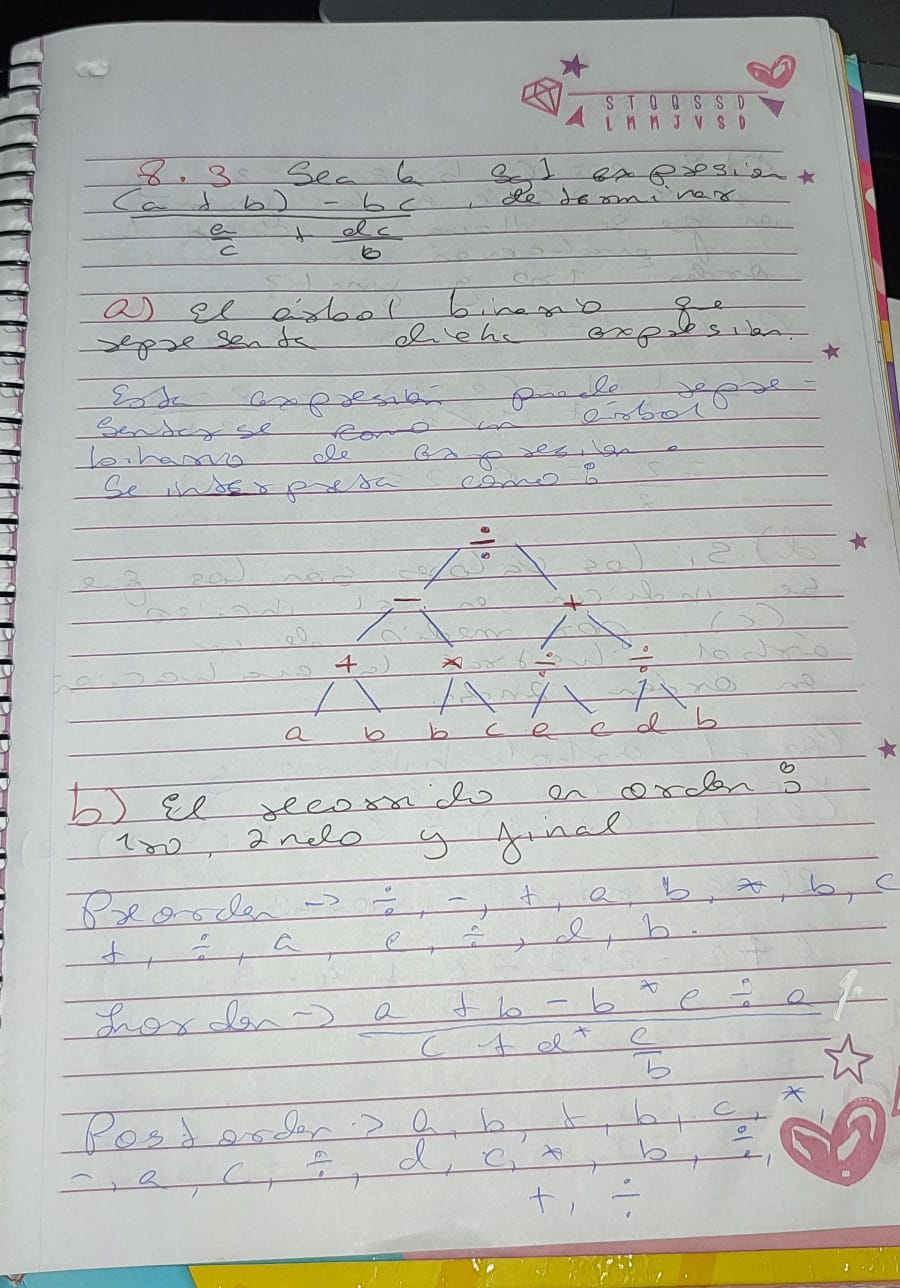 S T Q Q S S D
L M M J V S D
8.3 Sea la sgt expresion
(a + b) - bc , determinar
a/c + dc/b
a) El árbol binario que
representa dicha expresion.
Esta expresión puede repre-
sentarse como un árbol
binario de expresion.
Se interpreta como:
÷
- +
+ * ÷ ÷
a b b c a c d b
b) El recorrido en orden:
1ro, 2ndo y final
Preorden -> ÷, -, +, a, b, *, b, c
+, ÷, a, c, ÷, d, b.
Inorden -> a + b - b * c ÷ a /
c + d * c
b
Postorden -> a, b, +, b, c, *,
-, a, c, ÷, d, c, *, b, ÷,
+, ÷